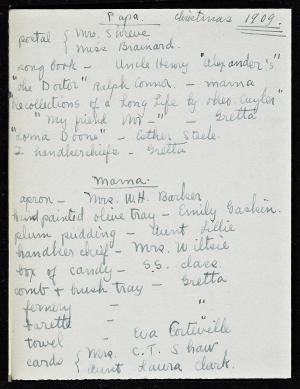 Papa. Christmas 1909.
postal { Mrs. Shreve
Miss Brainard.
song book - Uncle Henry "Alexander's"
"The Doctor" Ralph Connor. - mama
"Recollections of a Long Life by Theo. Cuyler"
"My friend - " - Gretta
"Lorna Doone" - Esther Steele.
2 handkerchiefs - Gretta
Mama.
apron - Mrs. W.H. Barber
hand painted olive tray - Emily Gaskin.
plum pudding - Aunt Lillie
handkerchief - Mrs. Wiltsie
box of candy - S.S. class
comb & brush tray - Gretta
fernery - "
barette - "
towel - Eva
cards { Mrs. C. T. Shaw
Aunt Laura Clark.